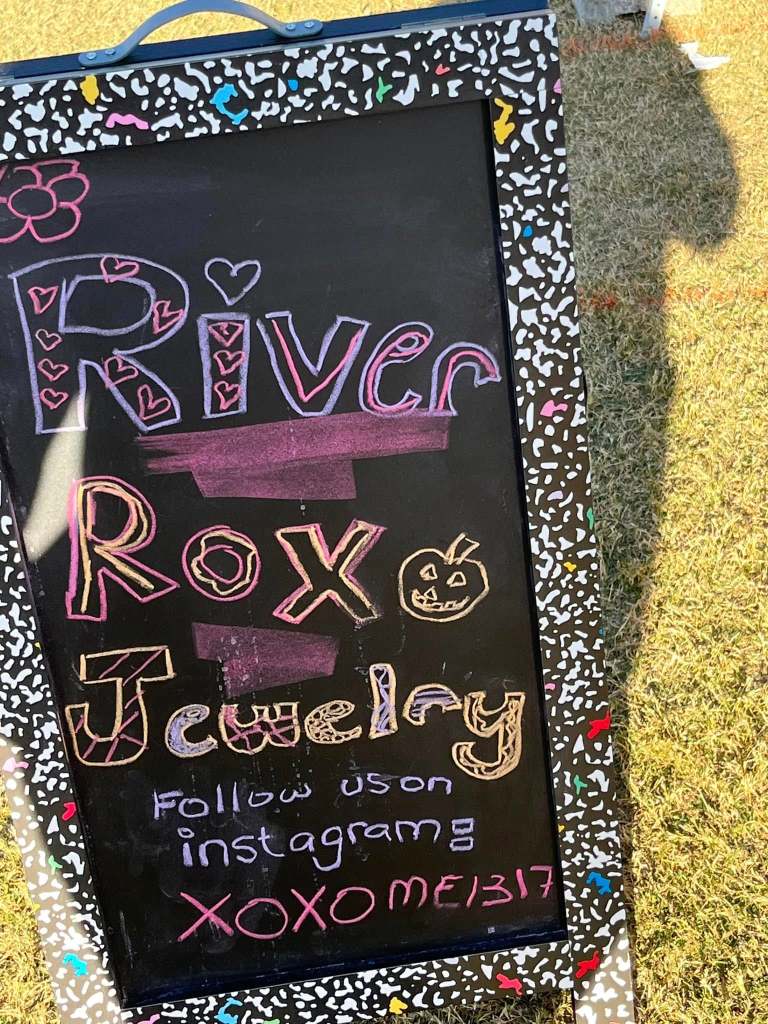 River
Rox
Jewelry
Follow us on
instagram:
XOXOME1317